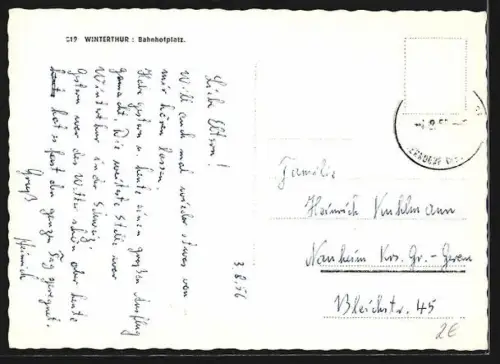 219 WINTERTHUR : Bahnhofplatz.
Liebe Eltern!
Will auch mal wieder etwas von
mir hören lassen.
Habe gestern u. heut einen großen Ausflug
gemacht. Die weiteste Stelle war
Winterthur in der Schweiz.
Gestern war das Wetter schön aber heute
hat es fast den ganzen Tag geregnet.
Gruß
Heinrich
3.8.56
Familie
Heinrich Kuhlmann
Nauheim Krs. Gr.-Gerau
Bleichstr. 45
2€